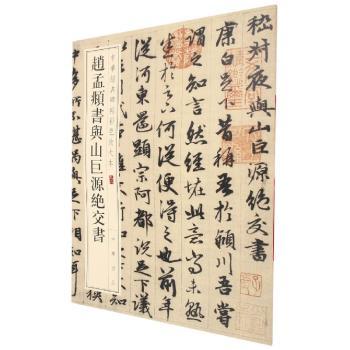 嵇叔夜與山巨源絶交書
康白足下昔稱吾於潁川吾嘗
謂之知言然經怪此意尚未熟
悉於足下何從便得之也前年
從河東還顯宗阿都說足下議
中華經典碑帖彩色放大本
趙孟頫書與山巨源絶交書